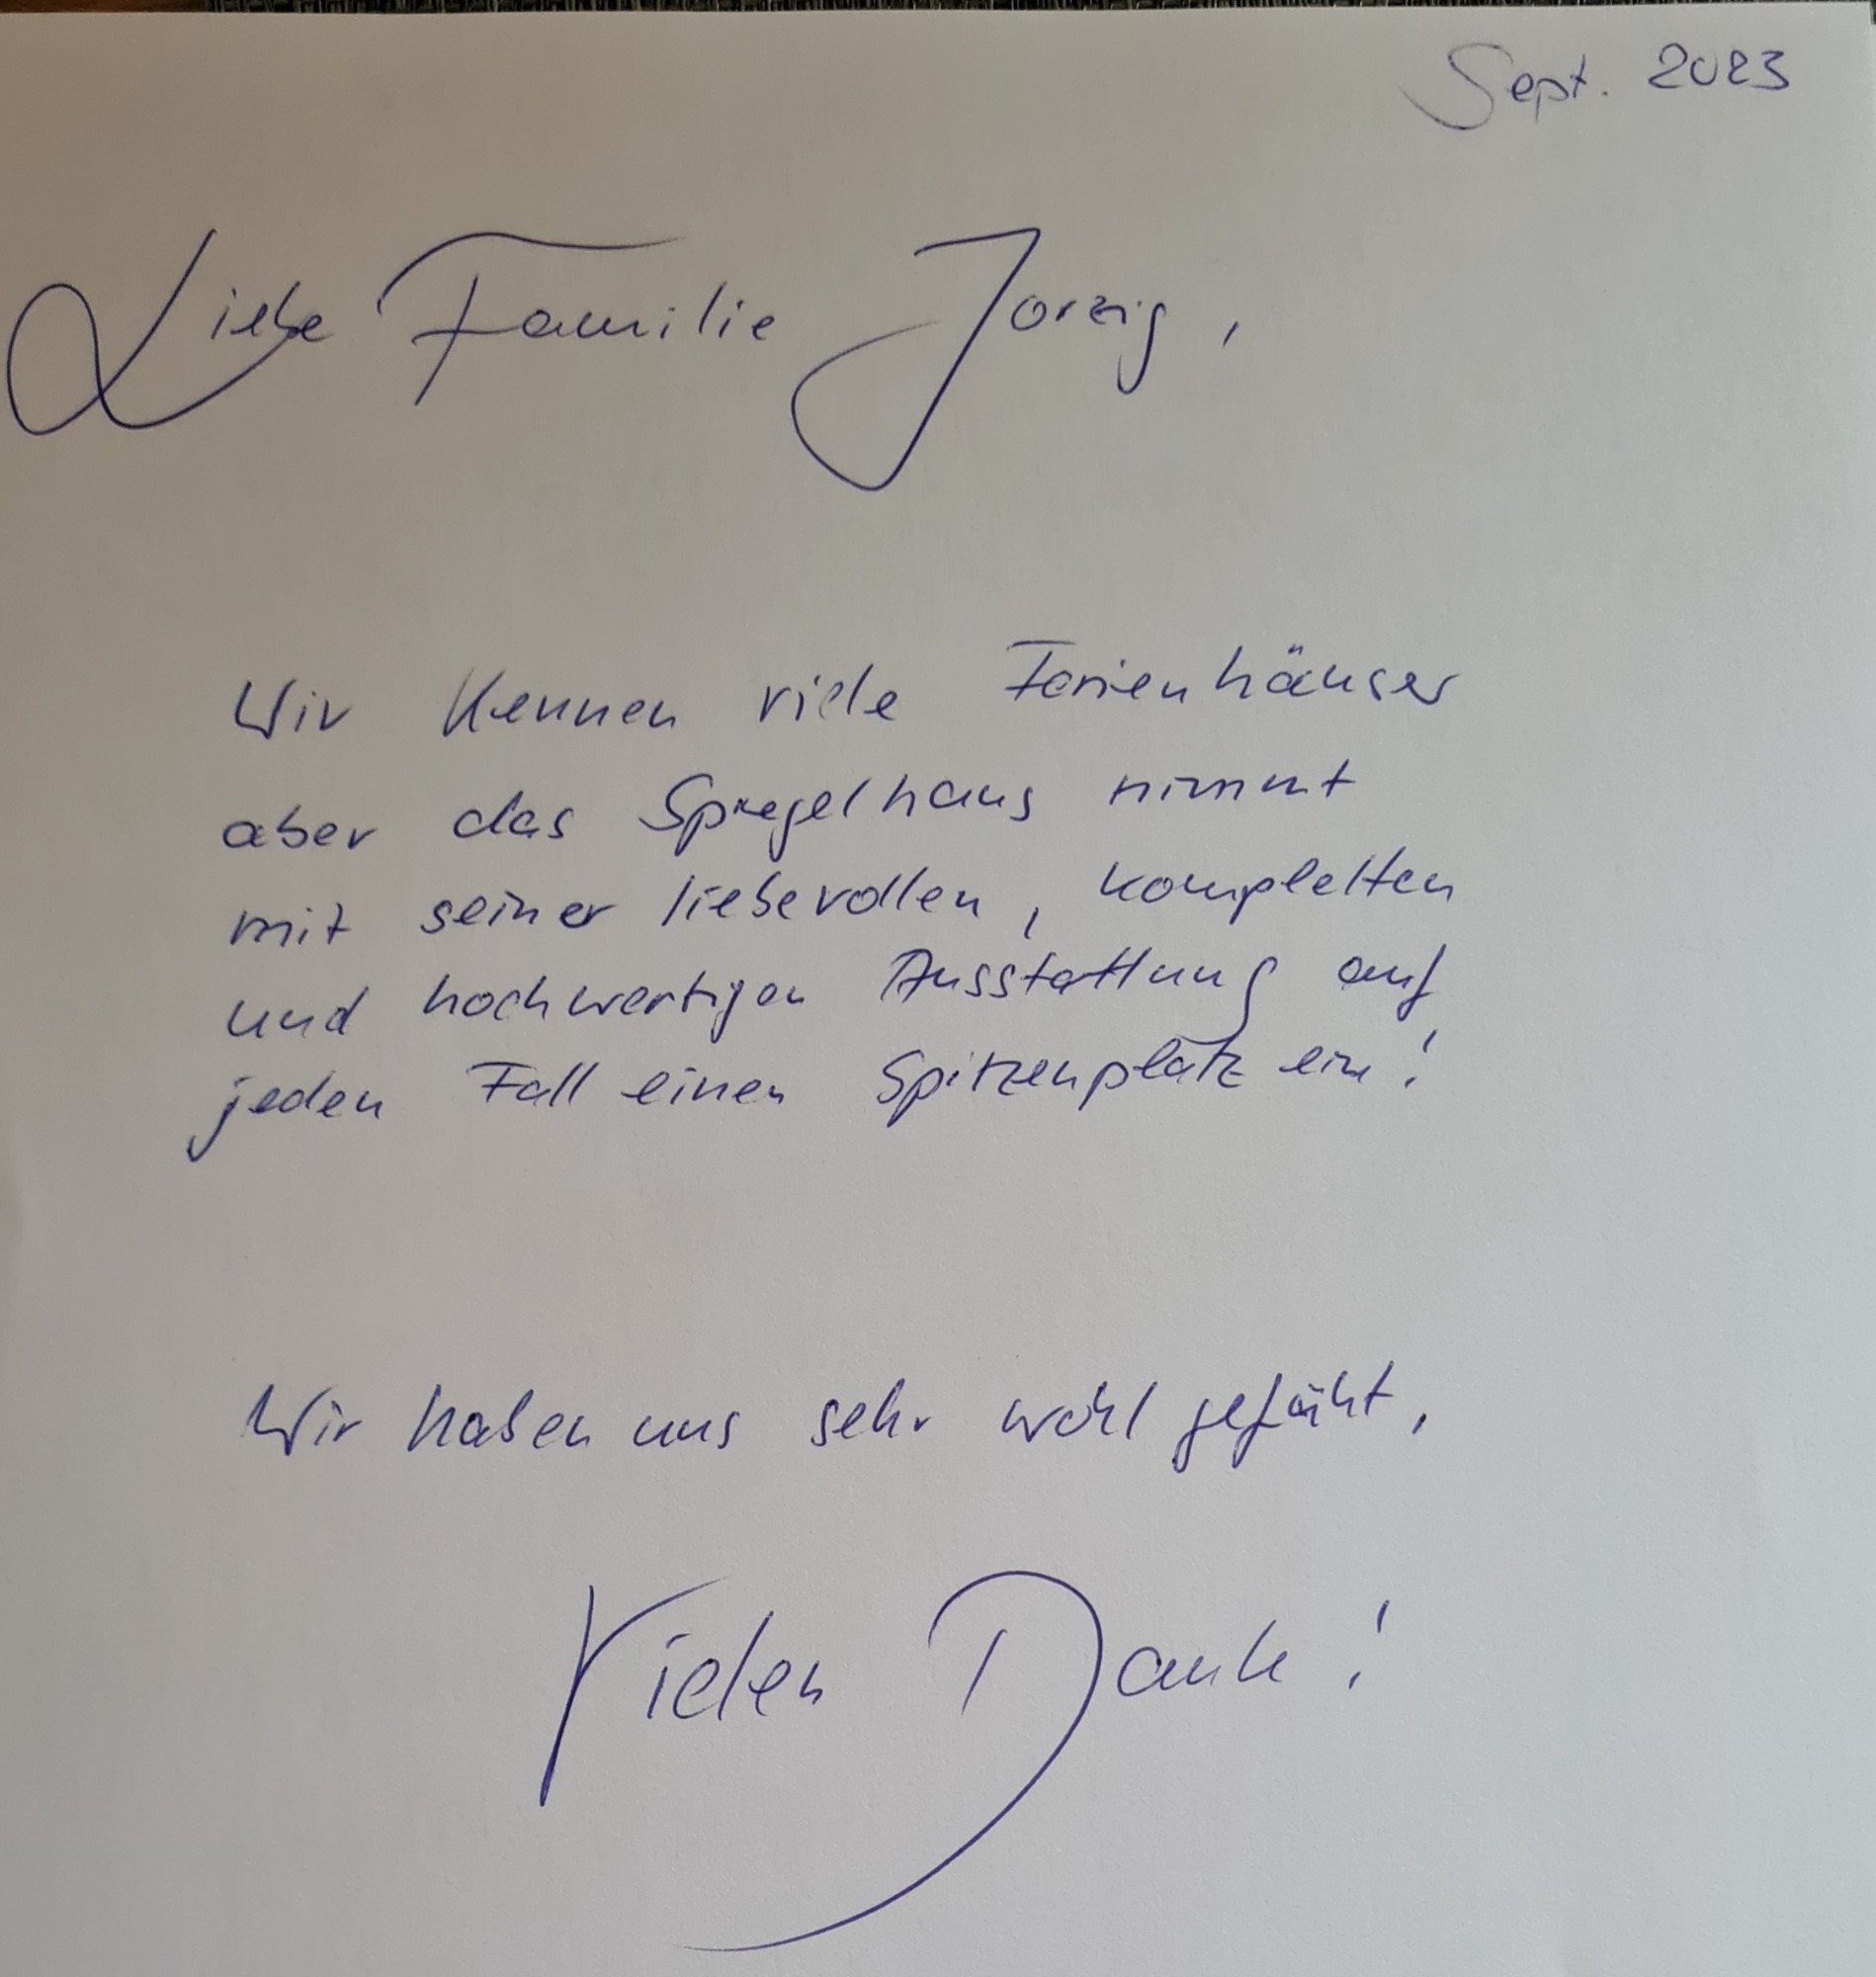 Sept. 2023
Liebe Familie Jorzig,
Wir kennen viele Ferienhäuser
aber das Spiegelhaus nimmt
mit seiner liebevollen, kompletten
und hochwertigen Ausstattung auf
jeden Fall einen Spitzenplatz ein!
Wir haben uns sehr wohl gefühlt,
Vielen Dank!